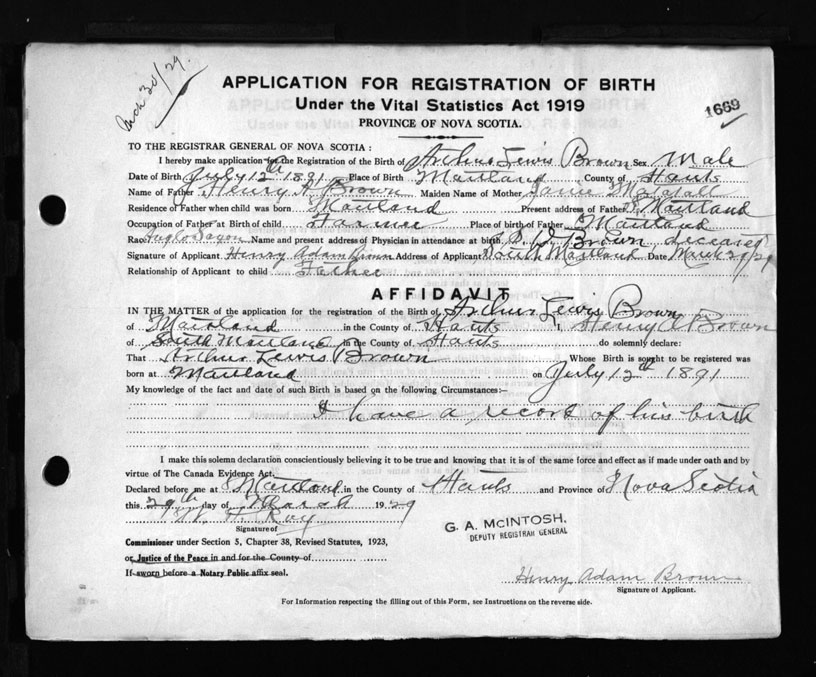 March 30/29.
APPLICATION FOR REGISTRATION OF BIRTH
Under the Vital Statistics Act 1919
PROVINCE OF NOVA SCOTIA.
1669
TO THE REGISTRAR GENERAL OF NOVA SCOTIA :
I hereby make application for the Registration of the Birth of Arthur Lewis Brown Sex Male
Date of Birth July 12th 1891 Place of Birth Maitland County of Hants
Name of Father Henry A Brown Maiden Name of Mother Janie
Residence of Father when child was born Maitland Present address of Father S. Maitland
Occupation of Father at Birth of child Farmer Place of birth of Father S Maitland
Race Anglo Saxon Name and present address of Physician in attendance at birth Brown deceased
Signature of Applicant Henry Adam Brown Address of Applicant South Maitland Date March 29/29
Relationship of Applicant to child Father
AFFIDAVIT
IN THE MATTER of the application for the registration of the Birth of Arthur Lewis Brown
of Maitland in the County of Hants I, Henry A Brown
of South Maitland in the County of Hants do solemnly declare:
That Arthur Lewis Brown Whose Birth is sought to be registered was
born at Maitland on July 12th 1891
My knowledge of the fact and date of such Birth is based on the following Circumstances:—
I have a record of his birth
I make this solemn declaration conscientiously believing it to be true and knowing that it is of the same force and effect as if made under oath and by
virtue of The Canada Evidence Act.
Declared before me at Maitland in the County of Hants and Province of Nova Scotia
this 29th day of March 1929
W. A. Roy
Signature of
G. A. McINTOSH,
DEPUTY REGISTRAR GENERAL
Commissioner under Section 5, Chapter 38, Revised Statutes, 1923,
or Justice of the Peace in and for the County of
If sworn before a Notary Public affix seal.
Henry Adam Brown
Signature of Applicant.
For Information respecting the filling out of this Form, see Instructions on the reverse side.